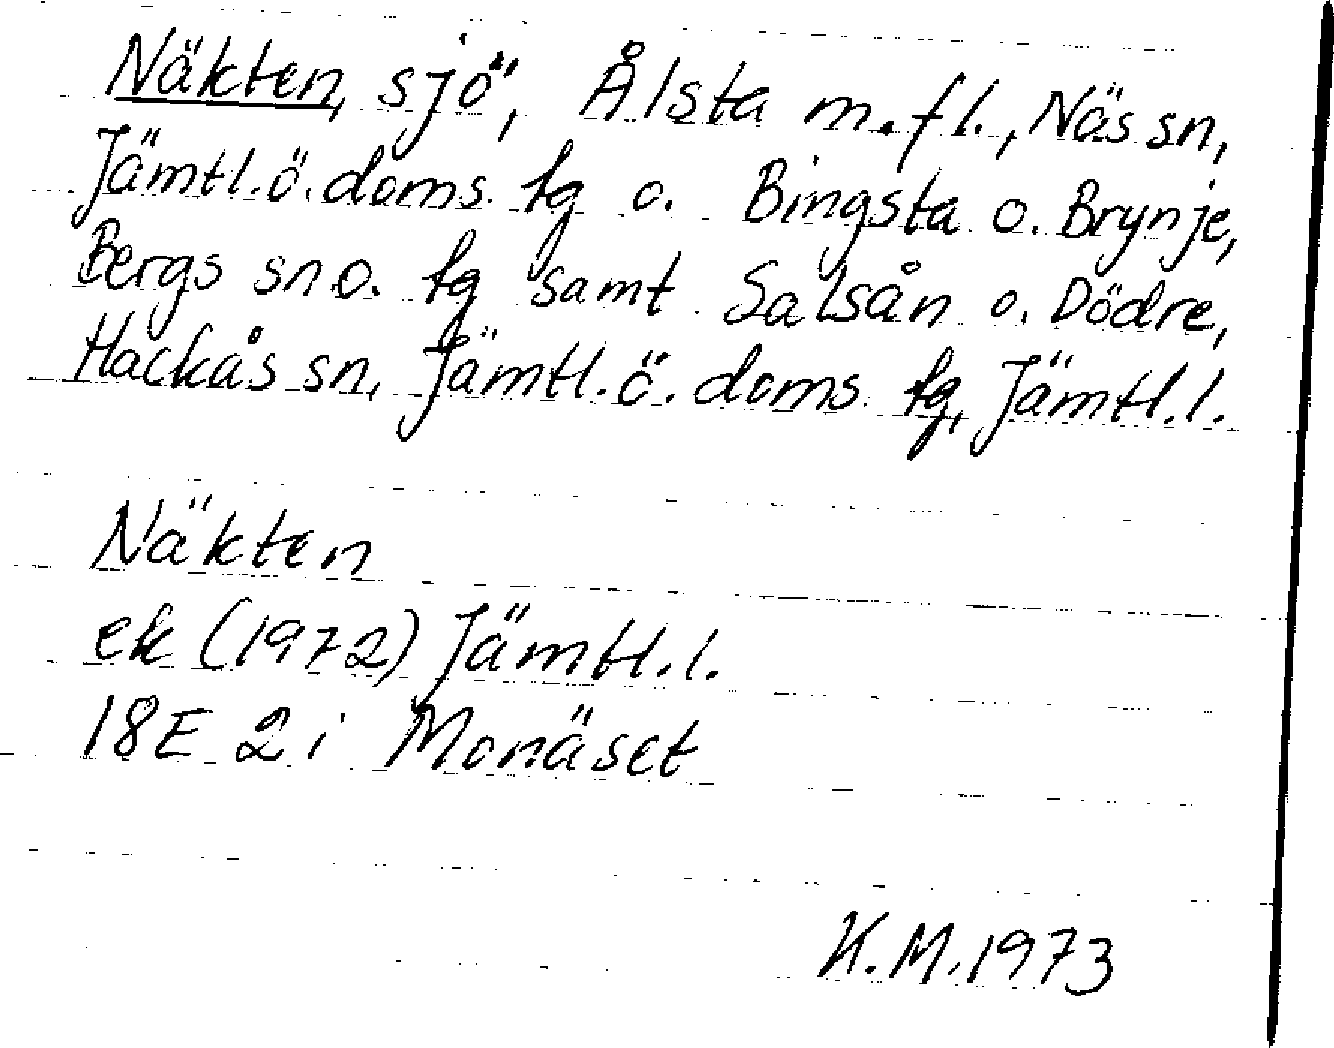 Näkten, sjö, Ålsta m.fl., Näs sn,
Jämtl.ö.doms. fg o. Bingsta o. Brynje,
Bergs sn o. fg samt Salsån o. Dödre,
Hackås sn, Jämtl.ö. doms. fg, Jämtl.l.
Näkten
ek (1972) Jämtl.l.
18E 2i Monäset
K.M.1973